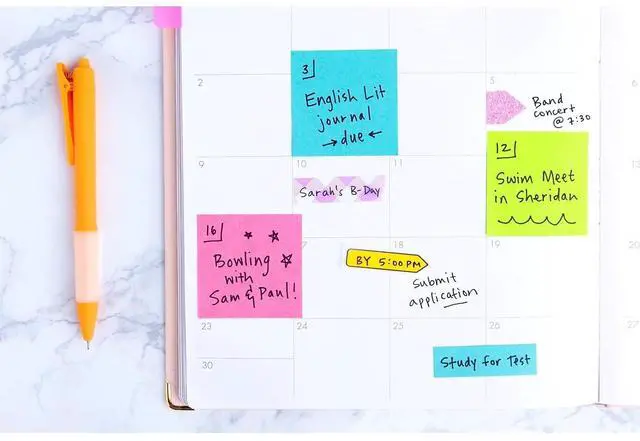 3
English Lit
journal
→due←
2
5
Band
concert
@ 7:30
6
12
Swim Meet
in Sheridan
9
10
11
Sarah's B-Day
16
Bowling
with
Sam & Paul!
18
BY 5:00PM
Submit
application
19
20
23
24
25
26
27
30
Study for Test